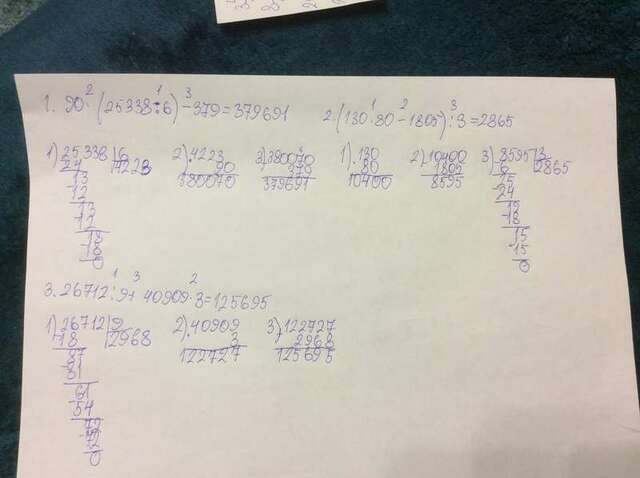 1. 90·(25338:6)-379=379691
2. (130·80-1805):3=2865
1) 25338|6
24 4223
13
12
13
12
18
18
0
2) 4223
90
380070
3) 380070
379
379691
1) 130
80
10400
2) 10400
1805
8595
3) 8595|3
6 2865
25
24
19
18
15
15
0
3. 26712:9+40909·3=125695
1) 26712|9
18 2968
87
81
61
54
72
72
0
2) 40909
3
122727
3) 122727
2968
125695